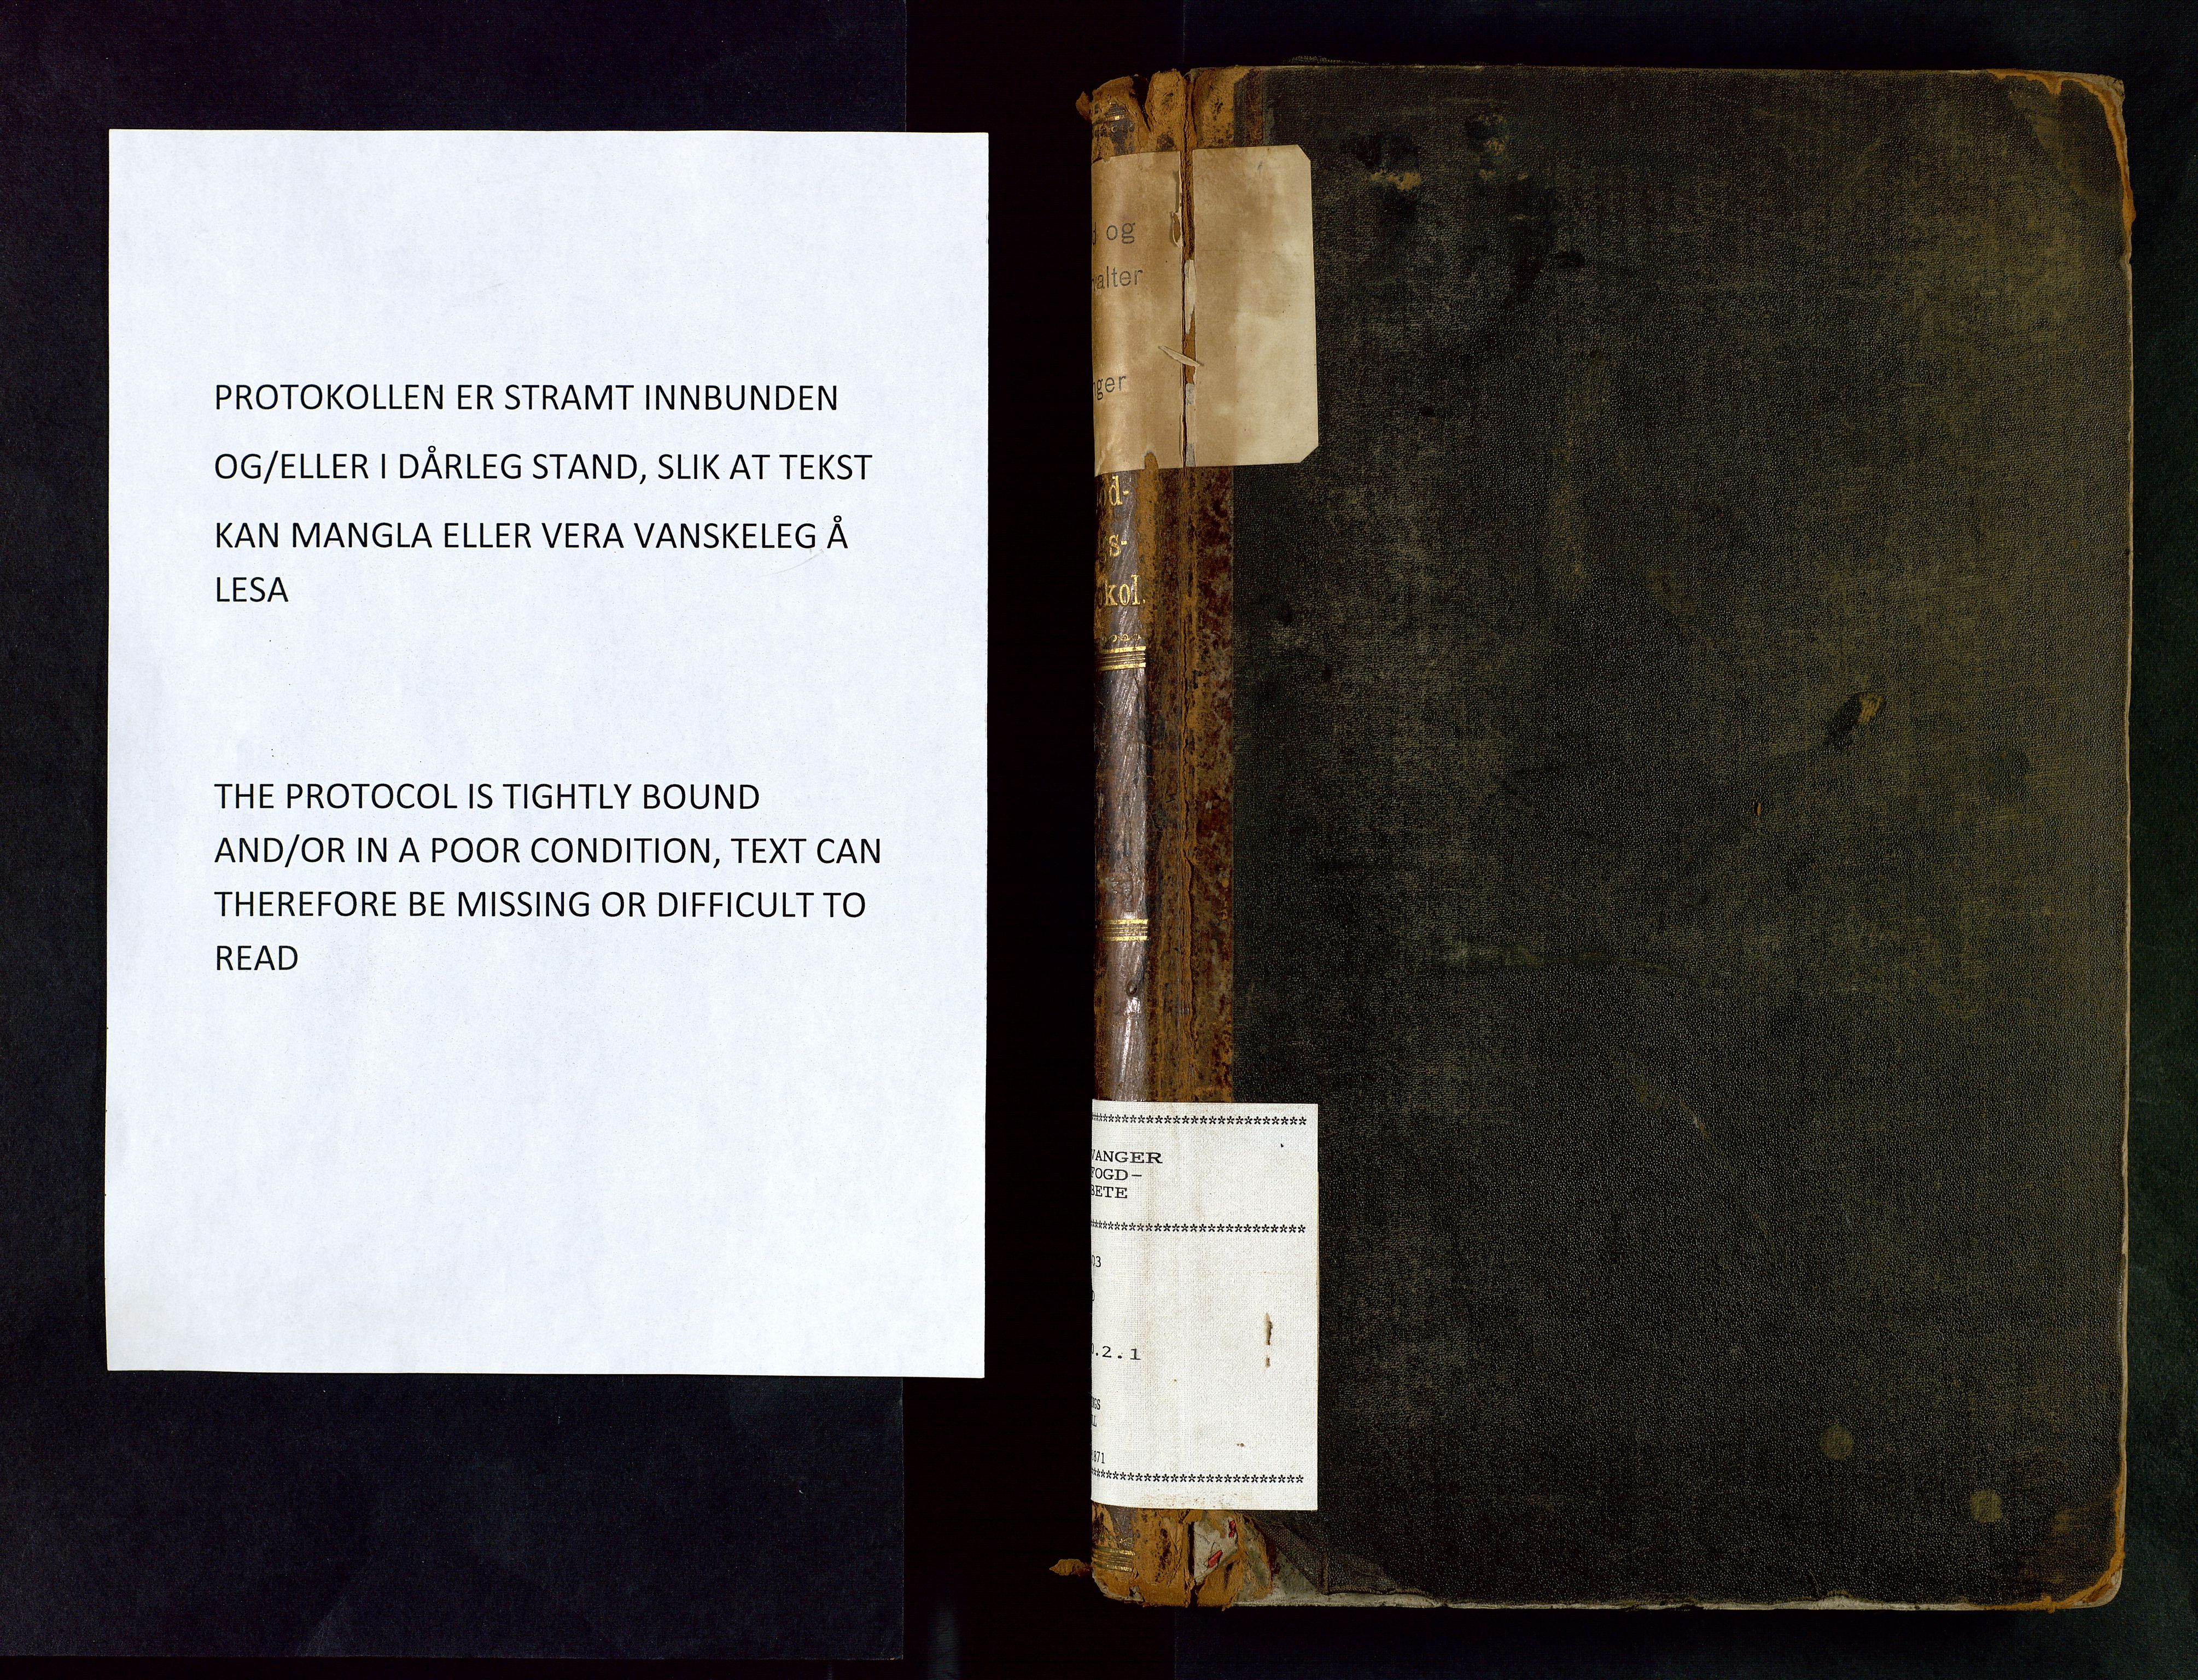 PROTOKOLLEN ER STRAMT INNBUNDEN
OG/ELLER I DÅRLEG STAND, SLIK AT TEKST
KAN MANGLA ELLER VERA VANSKELEG Å
LESA
THE PROTOCOL IS TIGHTLY BOUND
AND/OR IN A POOR CONDITION, TEXT CAN
THEREFORE BE MISSING OR DIFFICULT TO
READ
og
alter
nger
d-
s-
kol.
VANGER
FOGD-
BETE
03
.2.1
871